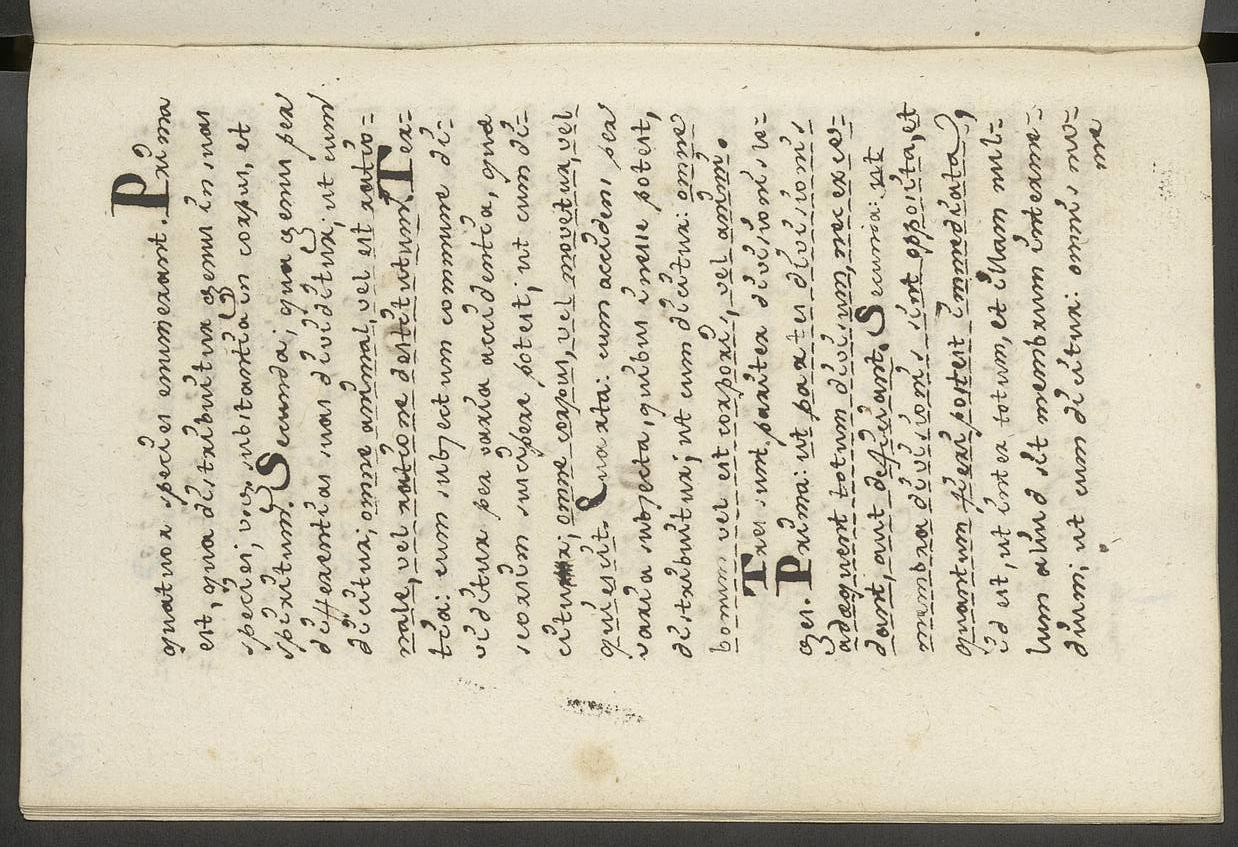 quatuor species enumerant. Prima
est, qua distribuitur genus in suas
species; v.g. substantia in corpus, et
spiritum. Secunda; qua genus per
differentias suas dividitur; ut cum
dicitur; omne animal, vel est ratio=
nale, vel ratione destitutum. Ter=
tia: cum subjectum commune di=
viditur per varia accidentia, quæ
seorsim suscipere potest; ut cum di=
citur; omne corpus, vel movetur, vel
quiescit. Quarta: cum accidens per
varia subjecta, quibus inesse potest,
distribuitur; ut cum dicitur: omne
bonum vel est corporis, vel animi.
Tres sunt pariter divisionis le=
ges. Prima: ut partes divisionis
adæquent totum divisum, nec exce=
dant, aut deficiant. Secunda: ut
membra divisionis sint opposita, et
quantum fieri potest immediata,
id est, ut inter totum, et illam nul=
lum aliud sit membrum interme=
dium; ut cum dicitur: omnis nu=
me